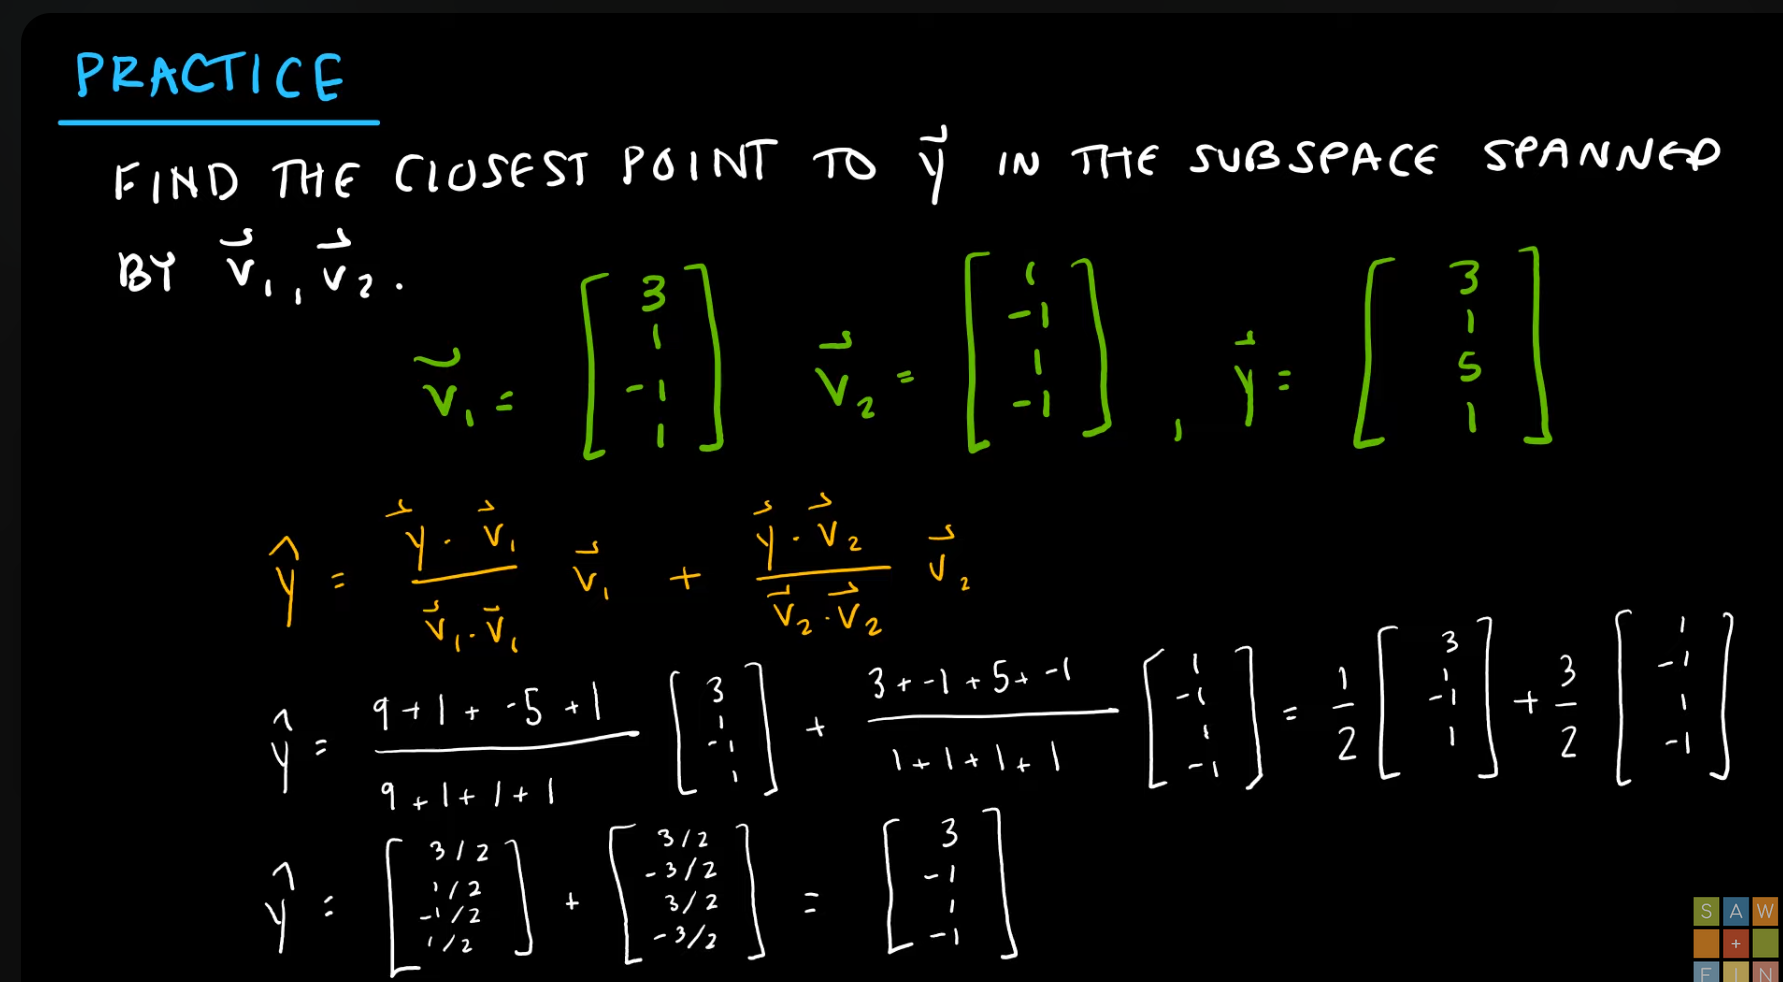 PRACTICE
FIND THE CLOSEST POINT TO y⃗ IN THE SUBSPACE SPANNED
BY v⃗₁, v⃗₂.
v⃗₁ = [3 1 -1 1] v⃗₂ = [1 -1 1 -1], y⃗ = [3 1 5 1]
ŷ = (y⃗ · v⃗₁)/(v⃗₁ · v⃗₁) v⃗₁ + (y⃗ · v⃗₂)/(v⃗₂ · v⃗₂) v⃗₂
ŷ = (9 + 1 + -5 + 1)/(9 + 1 + 1 + 1) [3 1 -1 1] + (3 + -1 + 5 + -1)/(1 + 1 + 1 + 1) [1 -1 1 -1] = 1/2 [3 1 -1 1] + 3/2 [1 -1 1 -1]
ŷ = [3/2 1/2 -1/2 1/2] + [3/2 -3/2 3/2 -3/2] = [3 -1 1 -1]
S A W
+
F I N